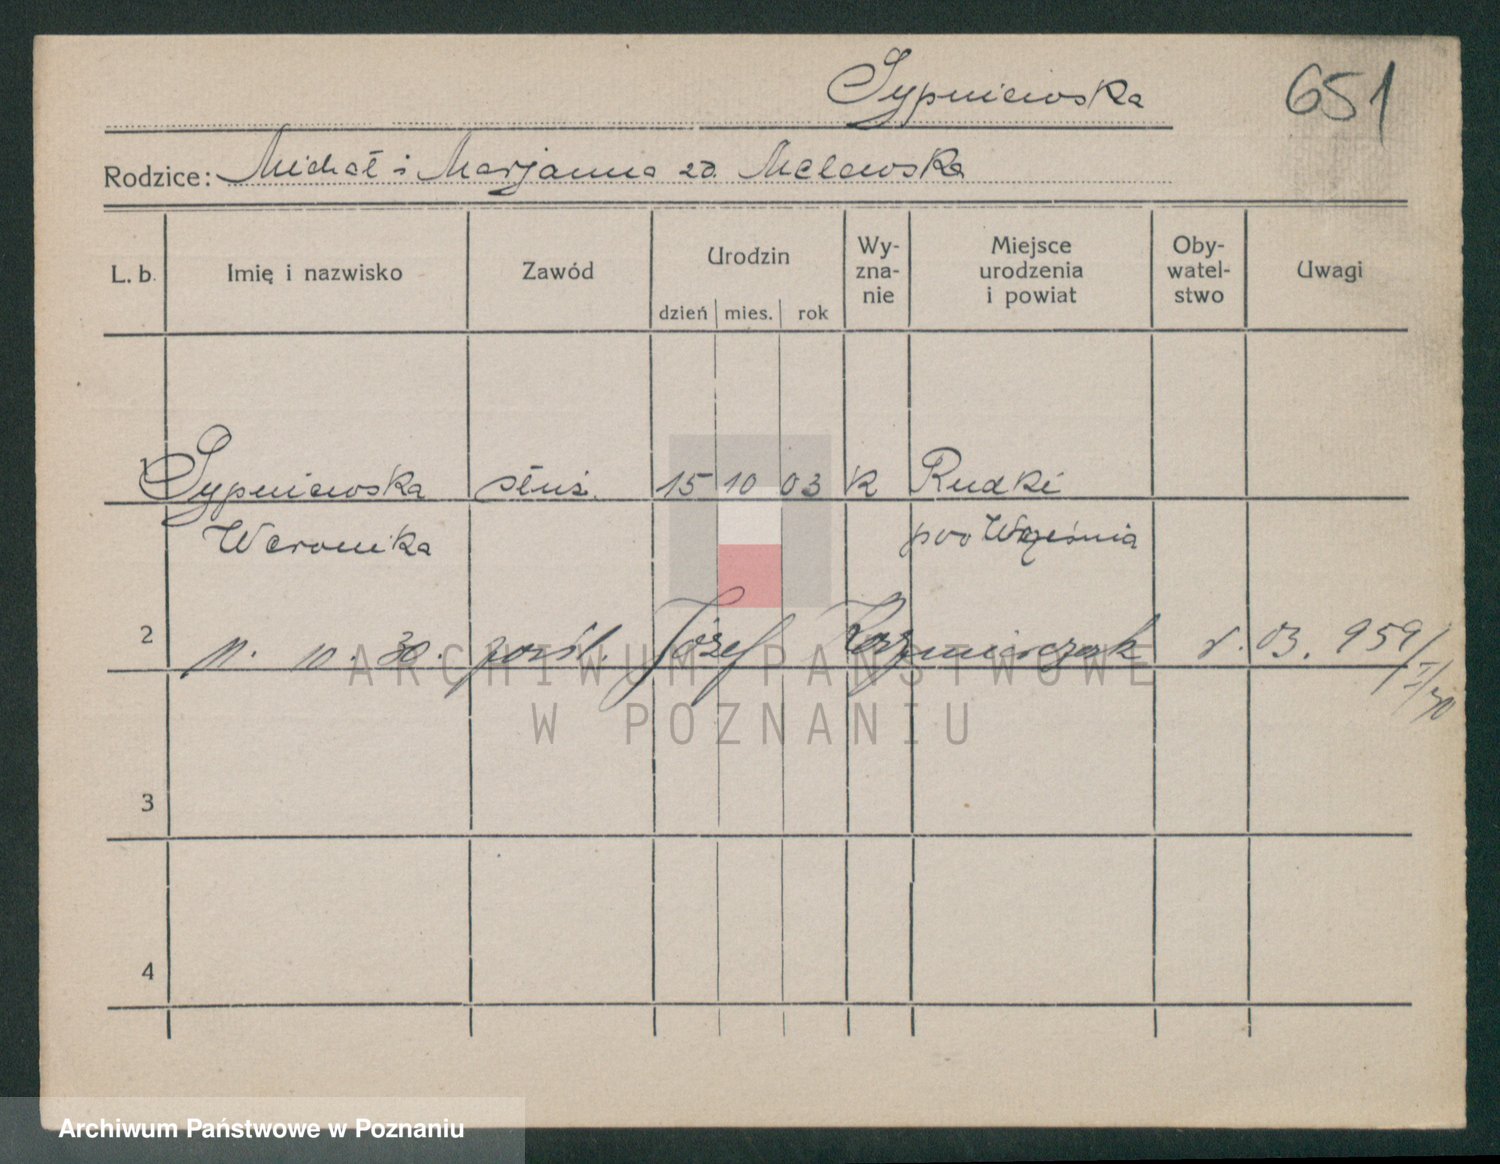 Sypniewska
651
Rodzice: Michał i Marjanna zd. Melewska
L. b. Imię i nazwisko Zawód Urodzin dzień mies. rok Wy-zna-nie Miejsce urodzenia i powiat Oby-watel-stwo Uwagi
1 Sypniewska służ. 15 10 03 K Rudki
Weronika pow Września
2 11. 10. 30. pośl. Józef Kazmierczak r. 03. 959/
ARCHIWUM PAŃSTWOWE
W POZNANIU
3
4
Archiwum Państwowe w Poznaniu